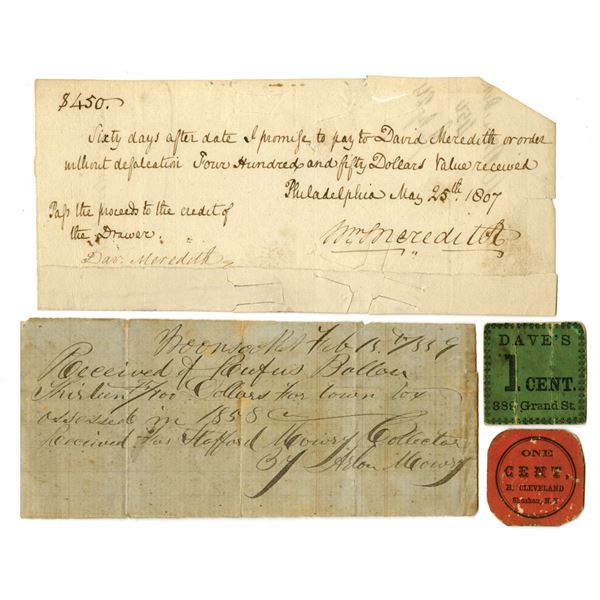 $450.
Sixty days after date I promise to pay to David Meredith or order
without defalcation Four Hundred and fifty Dollars Value received
Philadelphia May 25th. 1807
Pass the proceeds to the credit of
the Drawer.
Wm Meredith
Dav: Meredith
Woonsocket Feb 15th 1859
Received of Rufus Ballou
Thirteen /100 Dollars for town tax
assessed in 1858
Received for Stafford Mowry Collector
By Arlon Mowry
DAVE'S
1 CENT.
389 Grand St.
ONE
CENT,
H. CLEVELAND
Shushan, N.Y.